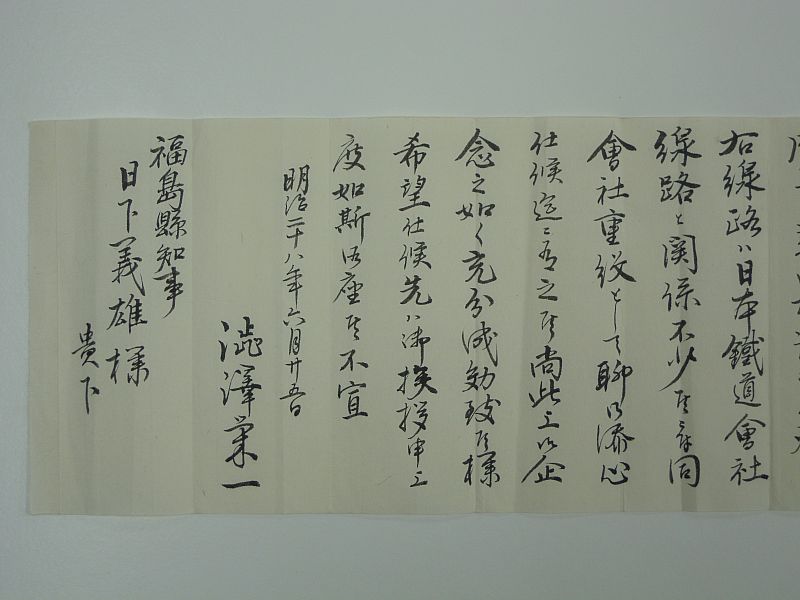 右線路ハ日本鐵道會社
線路と関係不少候方同
會社重役として聊御添心
仕候迄ニ有之候尚此上御企
念之如く充分成効致候様
希望仕候先ハ御挨拶申上
度如斯御座候不宣
明治二十八年六月廿五日
澁澤栄一
福島縣知事
日下義雄様
貴下